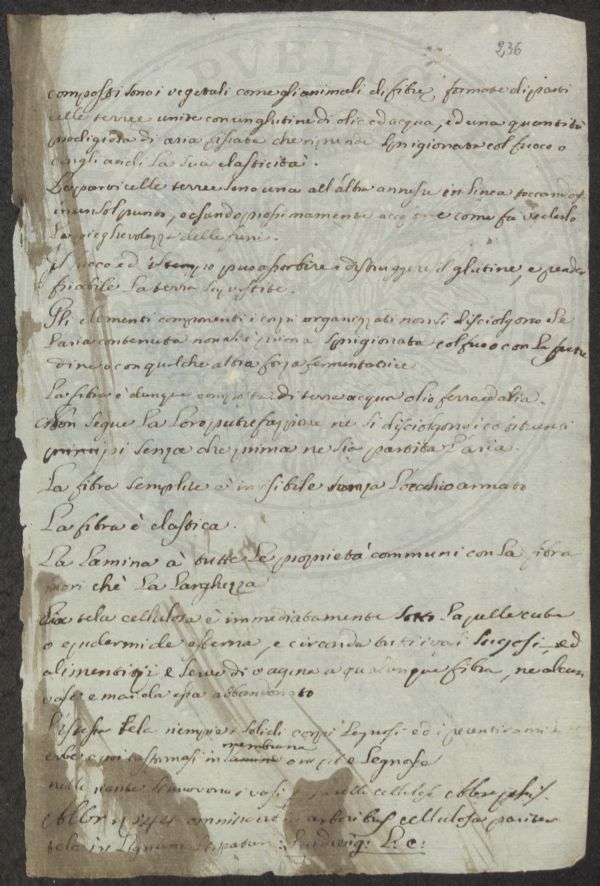 236
composti sono i vegetali come gli animali di fibre formate di parti
celle terree unite con un glutine di olio ed acqua, ed una quantità
prodigiosa di aria fissata che riprende sprigionata col fuoco o
cogli acidi la sua elasticità.
Le particelle terree sono una all'altra annesse in linea toccandosi
in un sol punto, come fa vederlo
la pieghevolezza delle funi.
Il fuoco ed il tempo può assorbire e distruggere il glutine, e render
friabile la terra superstite.
Gli elementi componenti i corpi organizzati non si disciolgono se
l'aria contenuta non sia prima sprigionata col fuoco o con la putre
dine o con qualche altra forza fermentatrice
La fibra è dunque composta di terra acqua olio ferro ed aria.
Non segue la loro putrefazione ne si disciolgono i costituenti
principi senza che prima ne sia partita l'aria.
La fibra semplice è invisibile senza l'occhio armato
La fibra è elastica.
La Lamina à tutte le proprietà communi con la fibra
fuori chè la larghezza
La tela cellulosa è immediatamente sotto la pelle cute
o epidermide esterna, e circonda tutti i vasi sugosi ed
alimentizi e serve di vagina a qualunque fibra, ne alcun
vase e mai da essa abbandonato
L'istessa tela riempie i solidi corpi legnosi ed i
erbe e poi trasformasi in membrana o in legnose
nelle piante vasi
in arboribus cellulosa
tela in lignum :